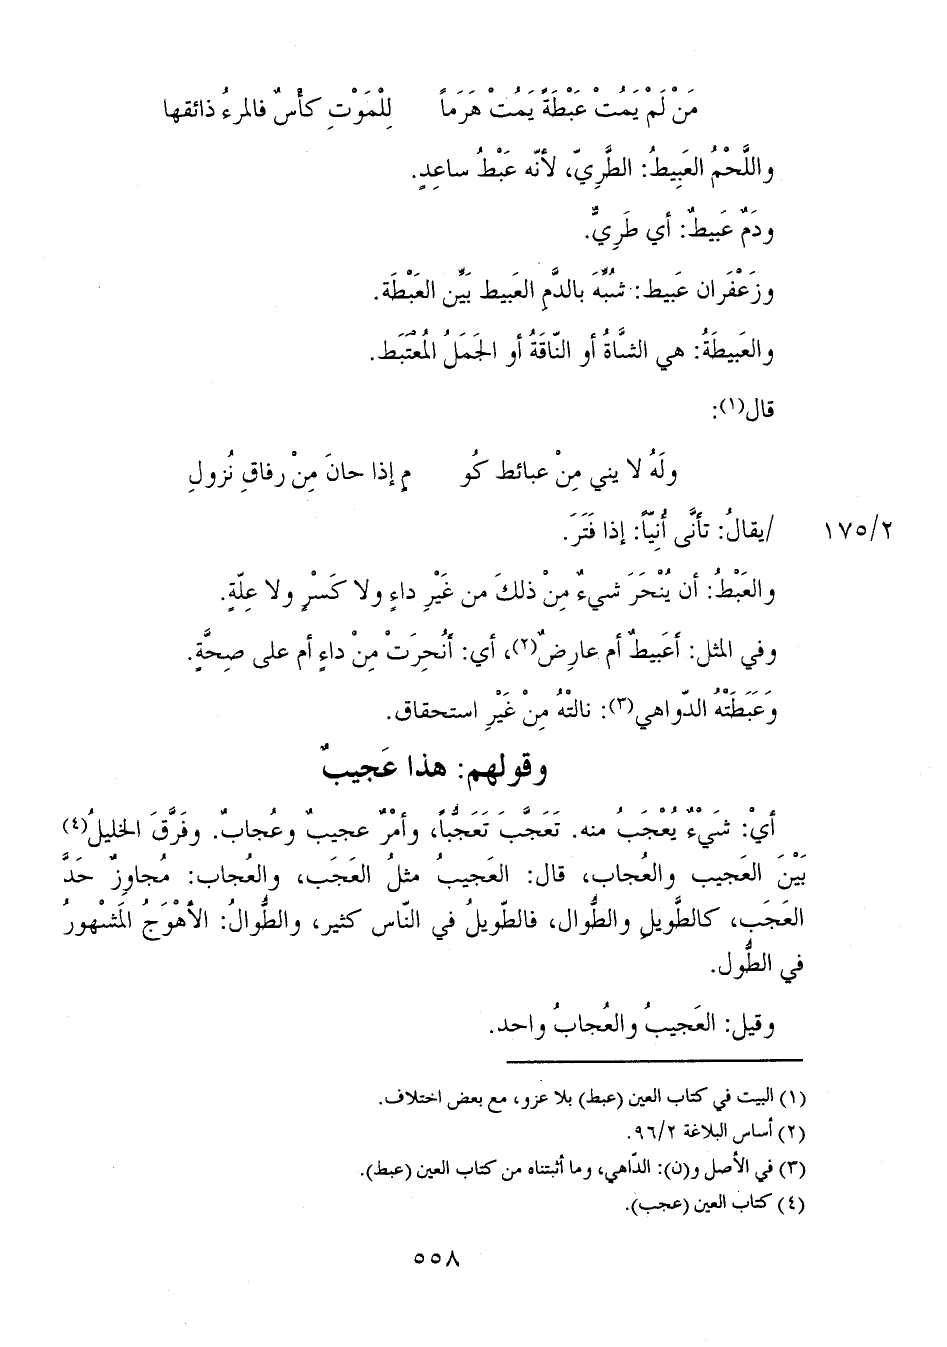 مَنْ لَمْ يَمُتْ عَبْطَةً يَمُتْ هَرَماً لِلْمَوْتِ كَأْسٌ فالمرءُ ذائقها
واللَّحْمُ العَبِيطُ: الطَّرِيّ، لأنّه عَبْطُ ساعِدٍ.
ودَمٌ عَبيطٌ: أي طَرِيٌّ.
وزَعْفَران عَبيط: شُبِّهَ بالدَّمِ العَبيط بَيِّن العَبْطَة.
والعَبيطَةُ: هي الشَّاةُ أو النّاقَةُ أو الجَمَلُ المُعْتَبَط.
قال(١):
ولَهُ لا يني مِنْ عبائط كُو مٍ إذا حانَ مِنْ رفاقٍ نُزولِ
١٧٥/٢ /يقالُ: تأنَّى أُنِيّاً: إذا فَتَرَ.
والعَبْطُ: أن يُنْحَرَ شيءٌ مِنْ ذلكَ من غَيْرِ داءٍ ولا كَسْرٍ ولا عِلّةٍ.
وفي المثل: أعَبيطٌ أم عارِضٌ(٢)، أي: أنُحِرَتْ مِنْ داءٍ أم على صِحَّةٍ.
وَعَبَطَتْهُ الدّواهي(٣): نالتْهُ مِنْ غَيْرِ استحقاق.
وقولهم: هذا عَجيبٌ
أيْ: شَيْءٌ يُعْجَبُ منه. تَعَجَّبَ تَعَجُّباً، وأمْرٌ عجيبٌ وعُجابٌ. وفَرَّقَ الخليلُ(٤)
بَيْنَ العَجيب والعُجاب، قال: العَجيبُ مثلُ العَجَب، والعُجاب: مُجاوِزٌ حَدَّ
العَجَب، كالطَّويلِ والطُّوال، فالطّويلُ في النّاس كثير، والطُّوالُ: الأهْوَجُ المَشْهورُ
في الطُّول.
وقيل: العَجيبُ والعُجابُ واحد.
(١) البيت في كتاب العين (عبط) بلا عزو، مع بعض اختلاف.
(٢) أساس البلاغة ٩٦/٢.
(٣) في الأصل و(ن): الدّاهي، وما أثبتناه من كتاب العين (عبط).
(٤) كتاب العين (عجب).
٥٥٨